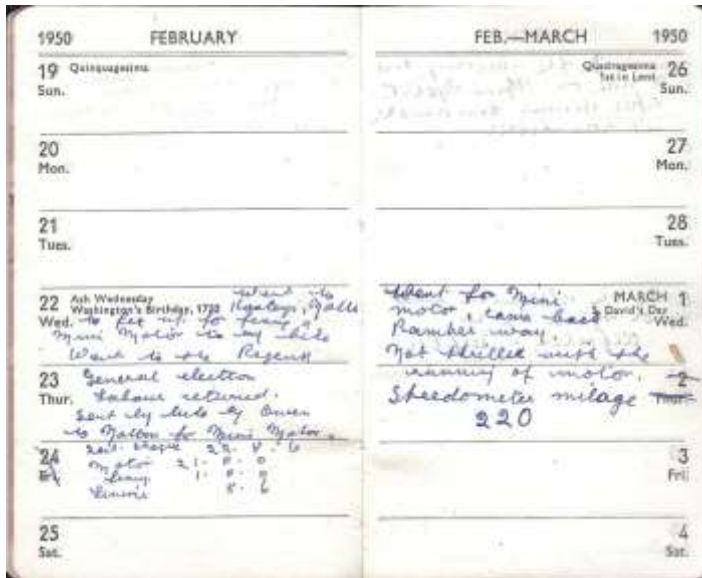 1950 FEBRUARY
19 Quinquagesima
Sun.
20
Mon.
21
Tues.
22 Ash Wednesday
Washington's Birthday, 1732
Wed.
went to
to fix up for
Mini Motor to my bike
Went to the Regent
23 General election
Thur. Labour returned.
Sent my bike by Owen
to for Mini Motor.
24
Fri.
22. 8. 6
Motor 21. 0. 0
1. 0. 0
8. 6
25
Sat.
FEB.—MARCH 1950
Quadragesima 26
1st in Lent Sun.
27
Mon.
28
Tues.
MARCH 1
S. David's Day
Wed.
Went for Mini
motor, came back
way
Not thrilled with the
running of motor.
2
Thur.
Speedometer milage
220
3
Fri.
4
Sat.